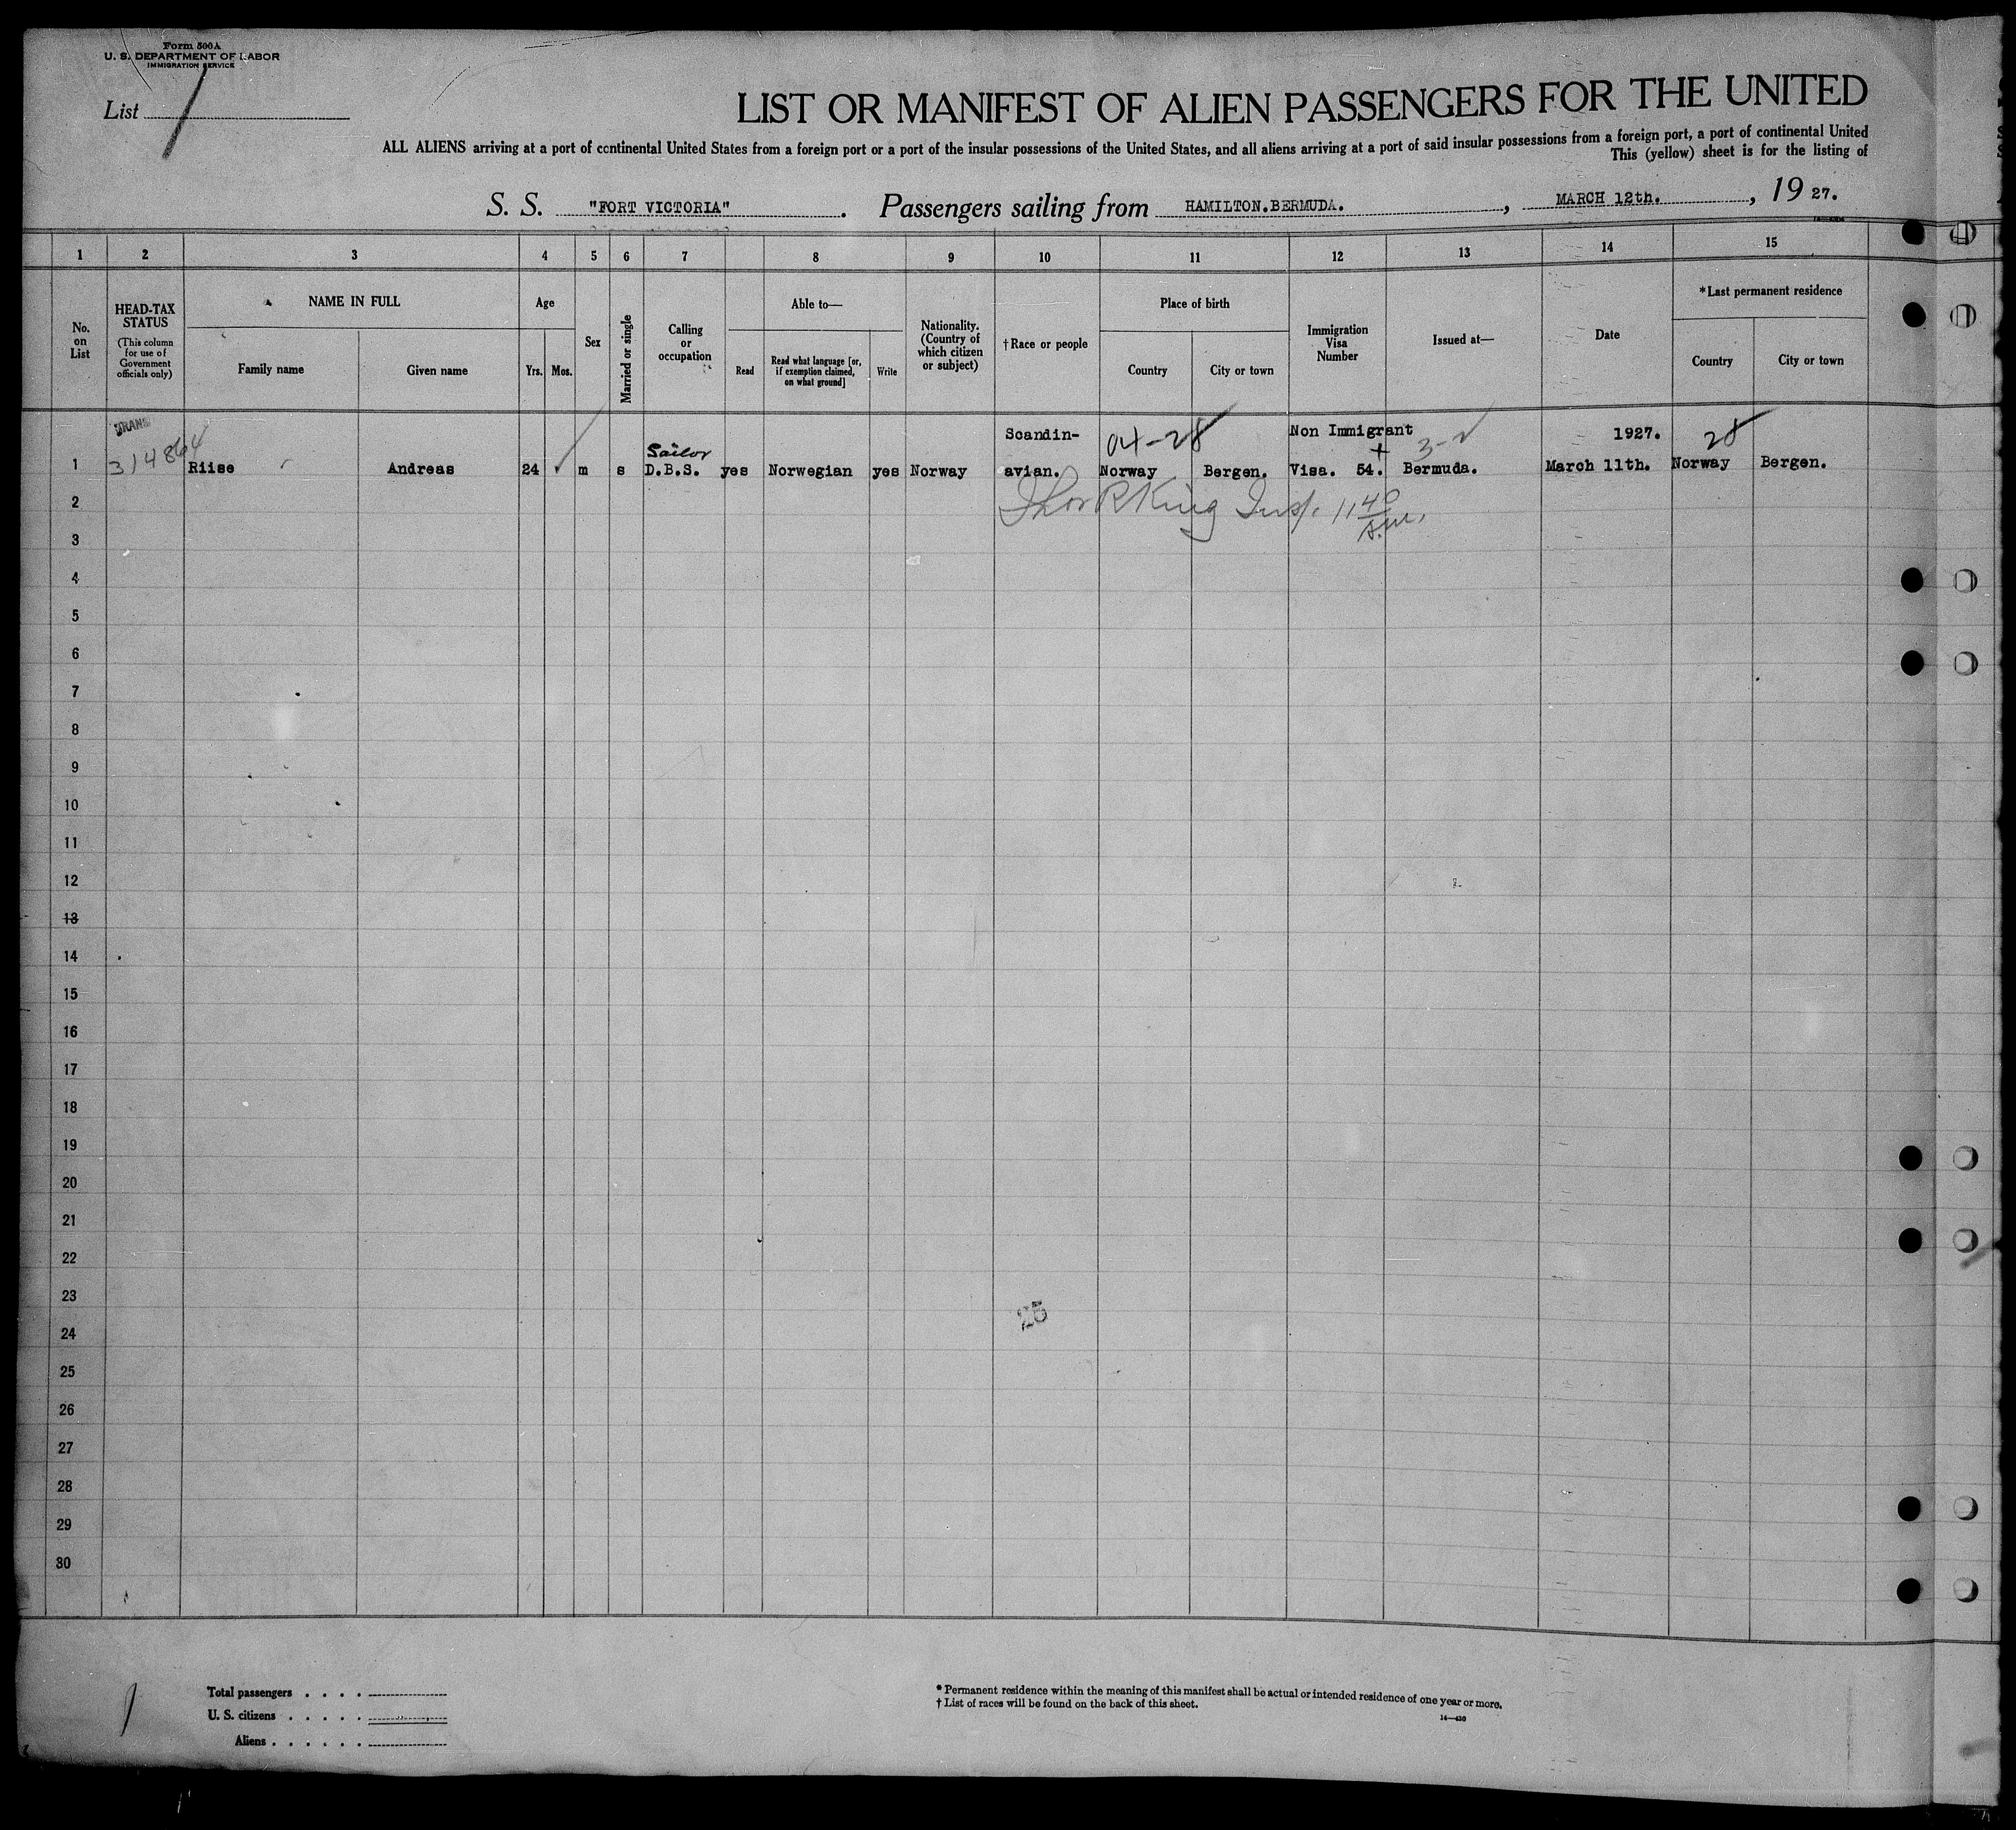 Form 500A
U. S. DEPARTMENT OF LABOR
IMMIGRATION SERVICE
List 1
LIST OR MANIFEST OF ALIEN PASSENGERS FOR THE UNITED
ALL ALIENS arriving at a port of continental United States from a foreign port or a port of the insular possessions of the United States, and all aliens arriving at a port of said insular possessions from a foreign port, a port of continental United
This (yellow) sheet is for the listing of
S. S. "FORT VICTORIA". Passengers sailing from HAMILTON.BERMUDA., MARCH 12th., 19 27.
1 2 3 4 5 6 7 8 9 10 11 12 13 14 15
No. on List
HEAD-TAX STATUS
(This column for use of Government officials only)
NAME IN FULL
Family name
Given name
Age
Yrs. Mos.
Sex
Married or single
Calling or occupation
Able to—
Read
Read what language [or, if exemption claimed, on what ground]
Write
Nationality. (Country of which citizen or subject)
†Race or people
Place of birth
Country
City or town
Immigration Visa Number
Issued at—
Date
*Last permanent residence
Country
City or town
TRANS Scandin- 04-28 Non Immigrant 3-2 1927. 28
Sailor
1 314864 Riise Andreas 24 m s D.B.S. yes Norwegian yes Norway avian. Norway Bergen. Visa. 54. Bermuda. March 11th. Norway Bergen.
2 Thor R King Insp. 11 40 A.m.
3
4
5
6
7
8
9
10
11
12
13
14
15
16
17
18
19
20
21
22
23
25
24
25
26
27
28
29
30
1
Total passengers
U. S. citizens
Aliens
* Permanent residence within the meaning of this manifest shall be actual or intended residence of one year or more.
† List of races will be found on the back of this sheet.
14—430